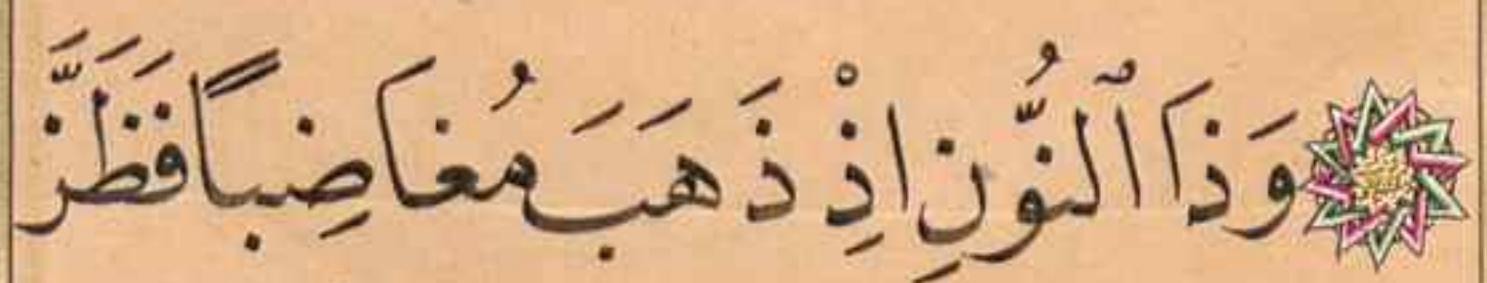 وَذَا ٱلنُّونِ اِذْ ذَهَبَ مُغَاضِبًا فَظَنَّ